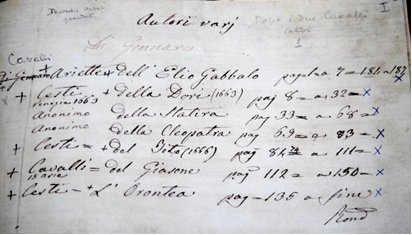 Autori varj
I
Di Gennaro
Cavalli
Di Gennaro + Ariette + dell' Elio Gabbalo pag 1 a 7 = 184 a 187
+ Cesti = + della Dori (1663) pag 8 = a 32 = x
Anonimo della Statira pag 33 = a 68 = x
Anonimo della Cleopatra pag 69 = a 83 = x
+ Cesti = + del Tito (1666) pag 84 = a 111 = x
+ Cavalli = del Giasone pag 112 = a 150 = x
15 arie
+ Cesti = + L' Orontea pag = 135 a fine x